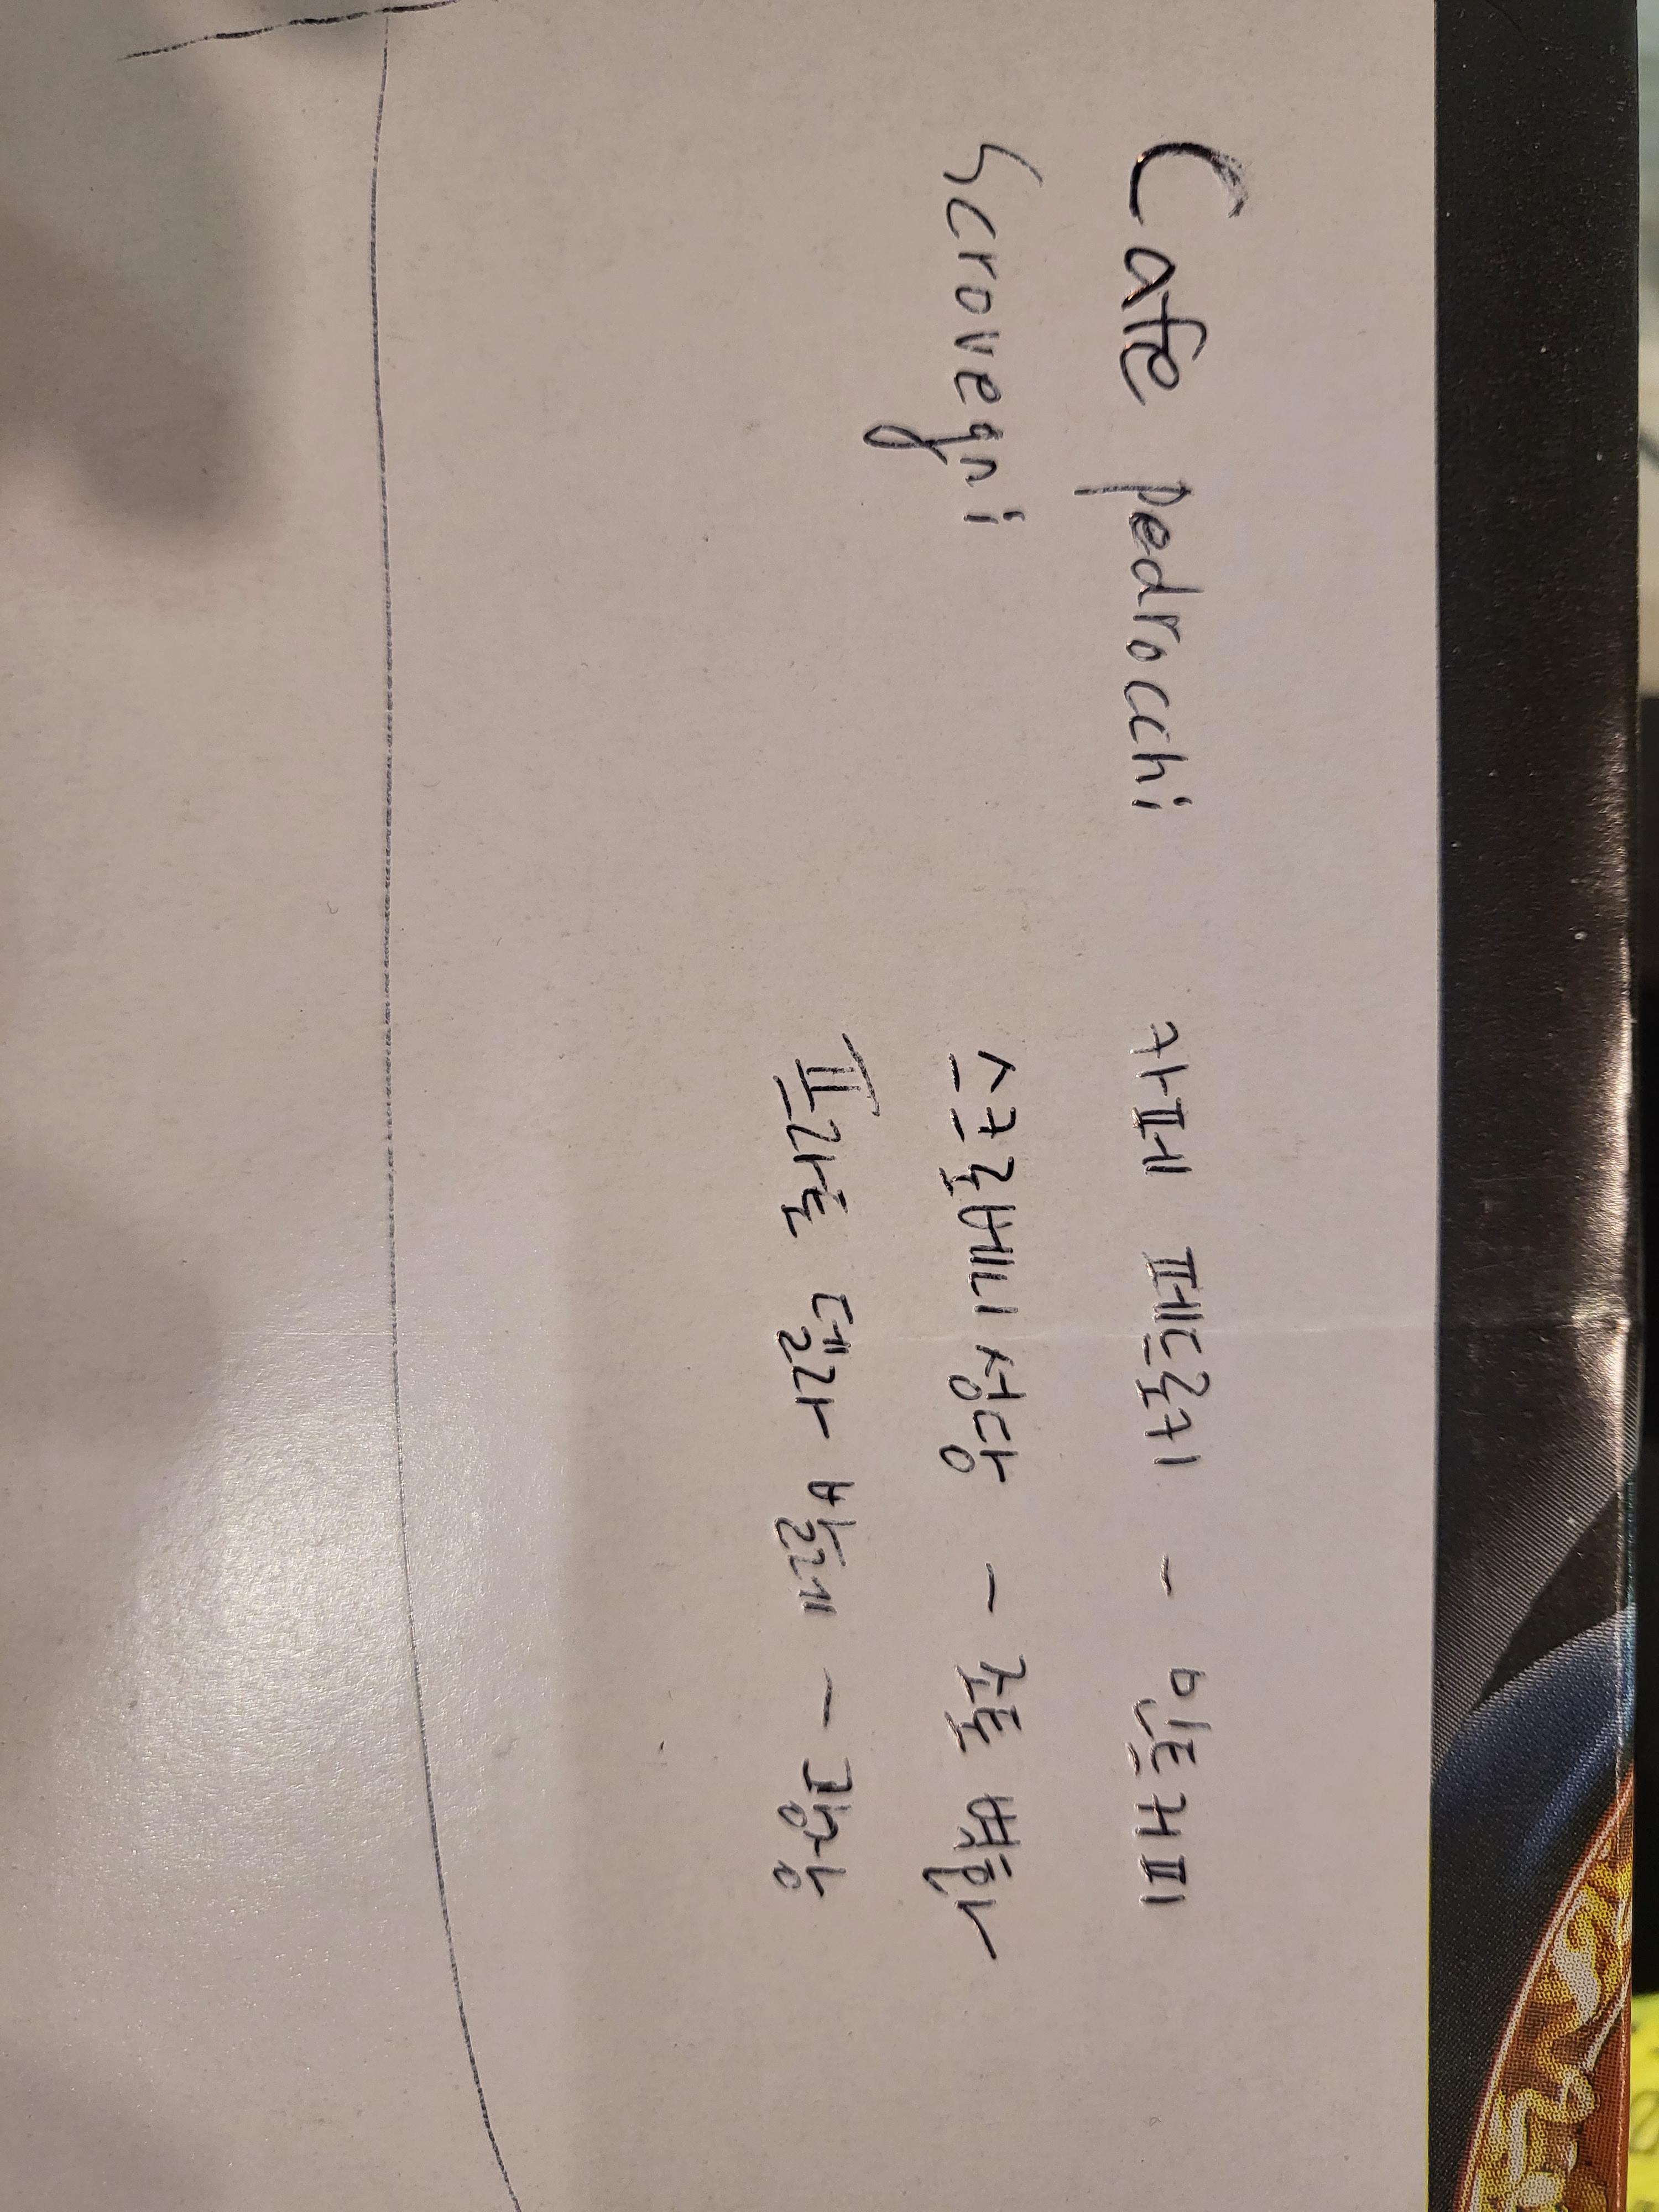 Cafe pedrocchi 카페 페드로키 - 민트커피
Scrovegni 스크로베니 성당 - 조토 벽화
프라토 델라 발레 - 공원